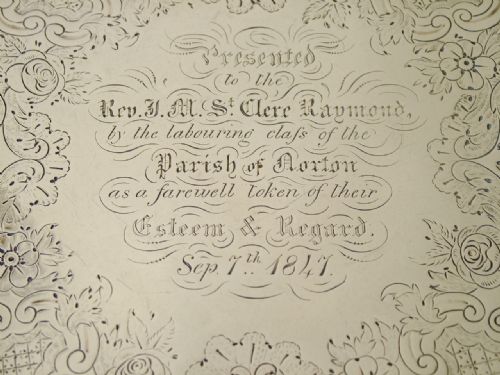 Presented
to the
Rev. J. M. St. Clere Raymond,
by the labouring claſs of the
Parish of Norton
as a farewell token of their
Esteem & Regard.
Sep. 7th. 1847.